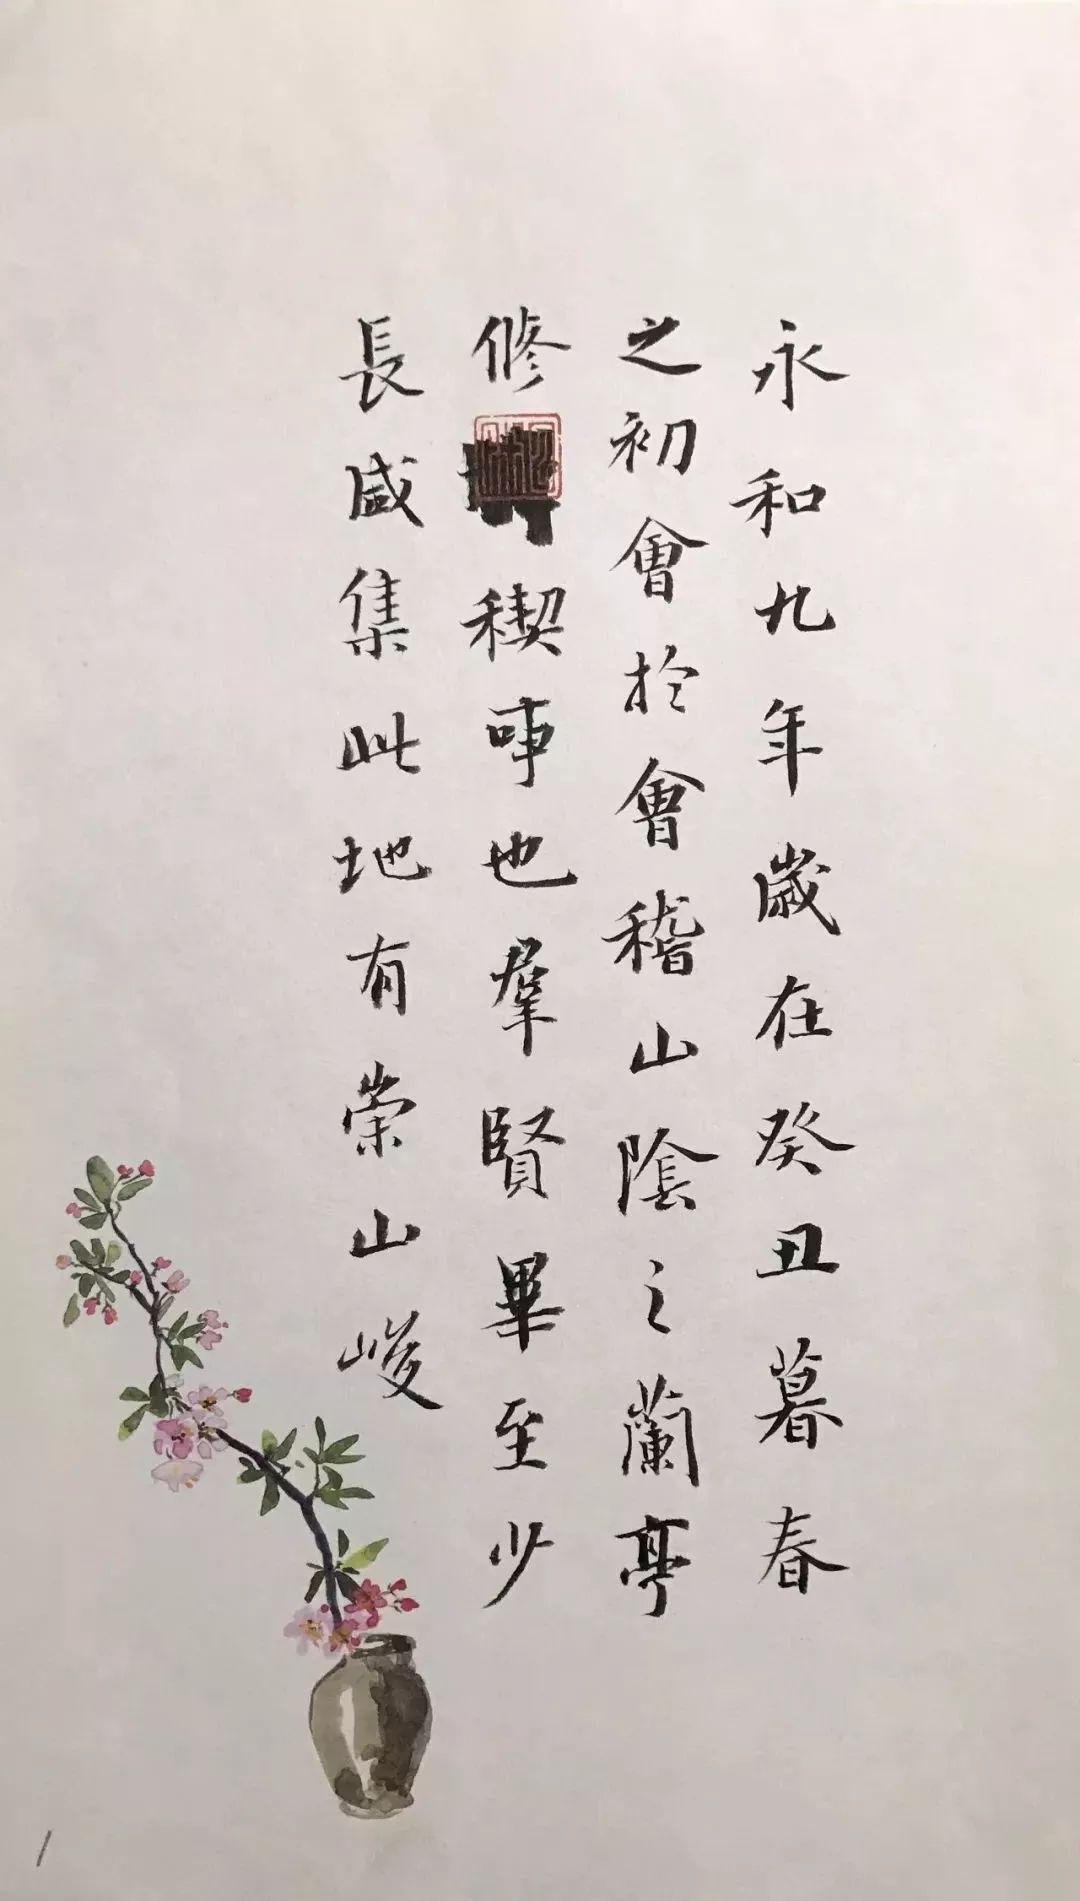 永和九年歲在癸丑暮春
之初會於會稽山陰之蘭亭
修稧事也羣賢畢至少
長咸集此地有崇山峻